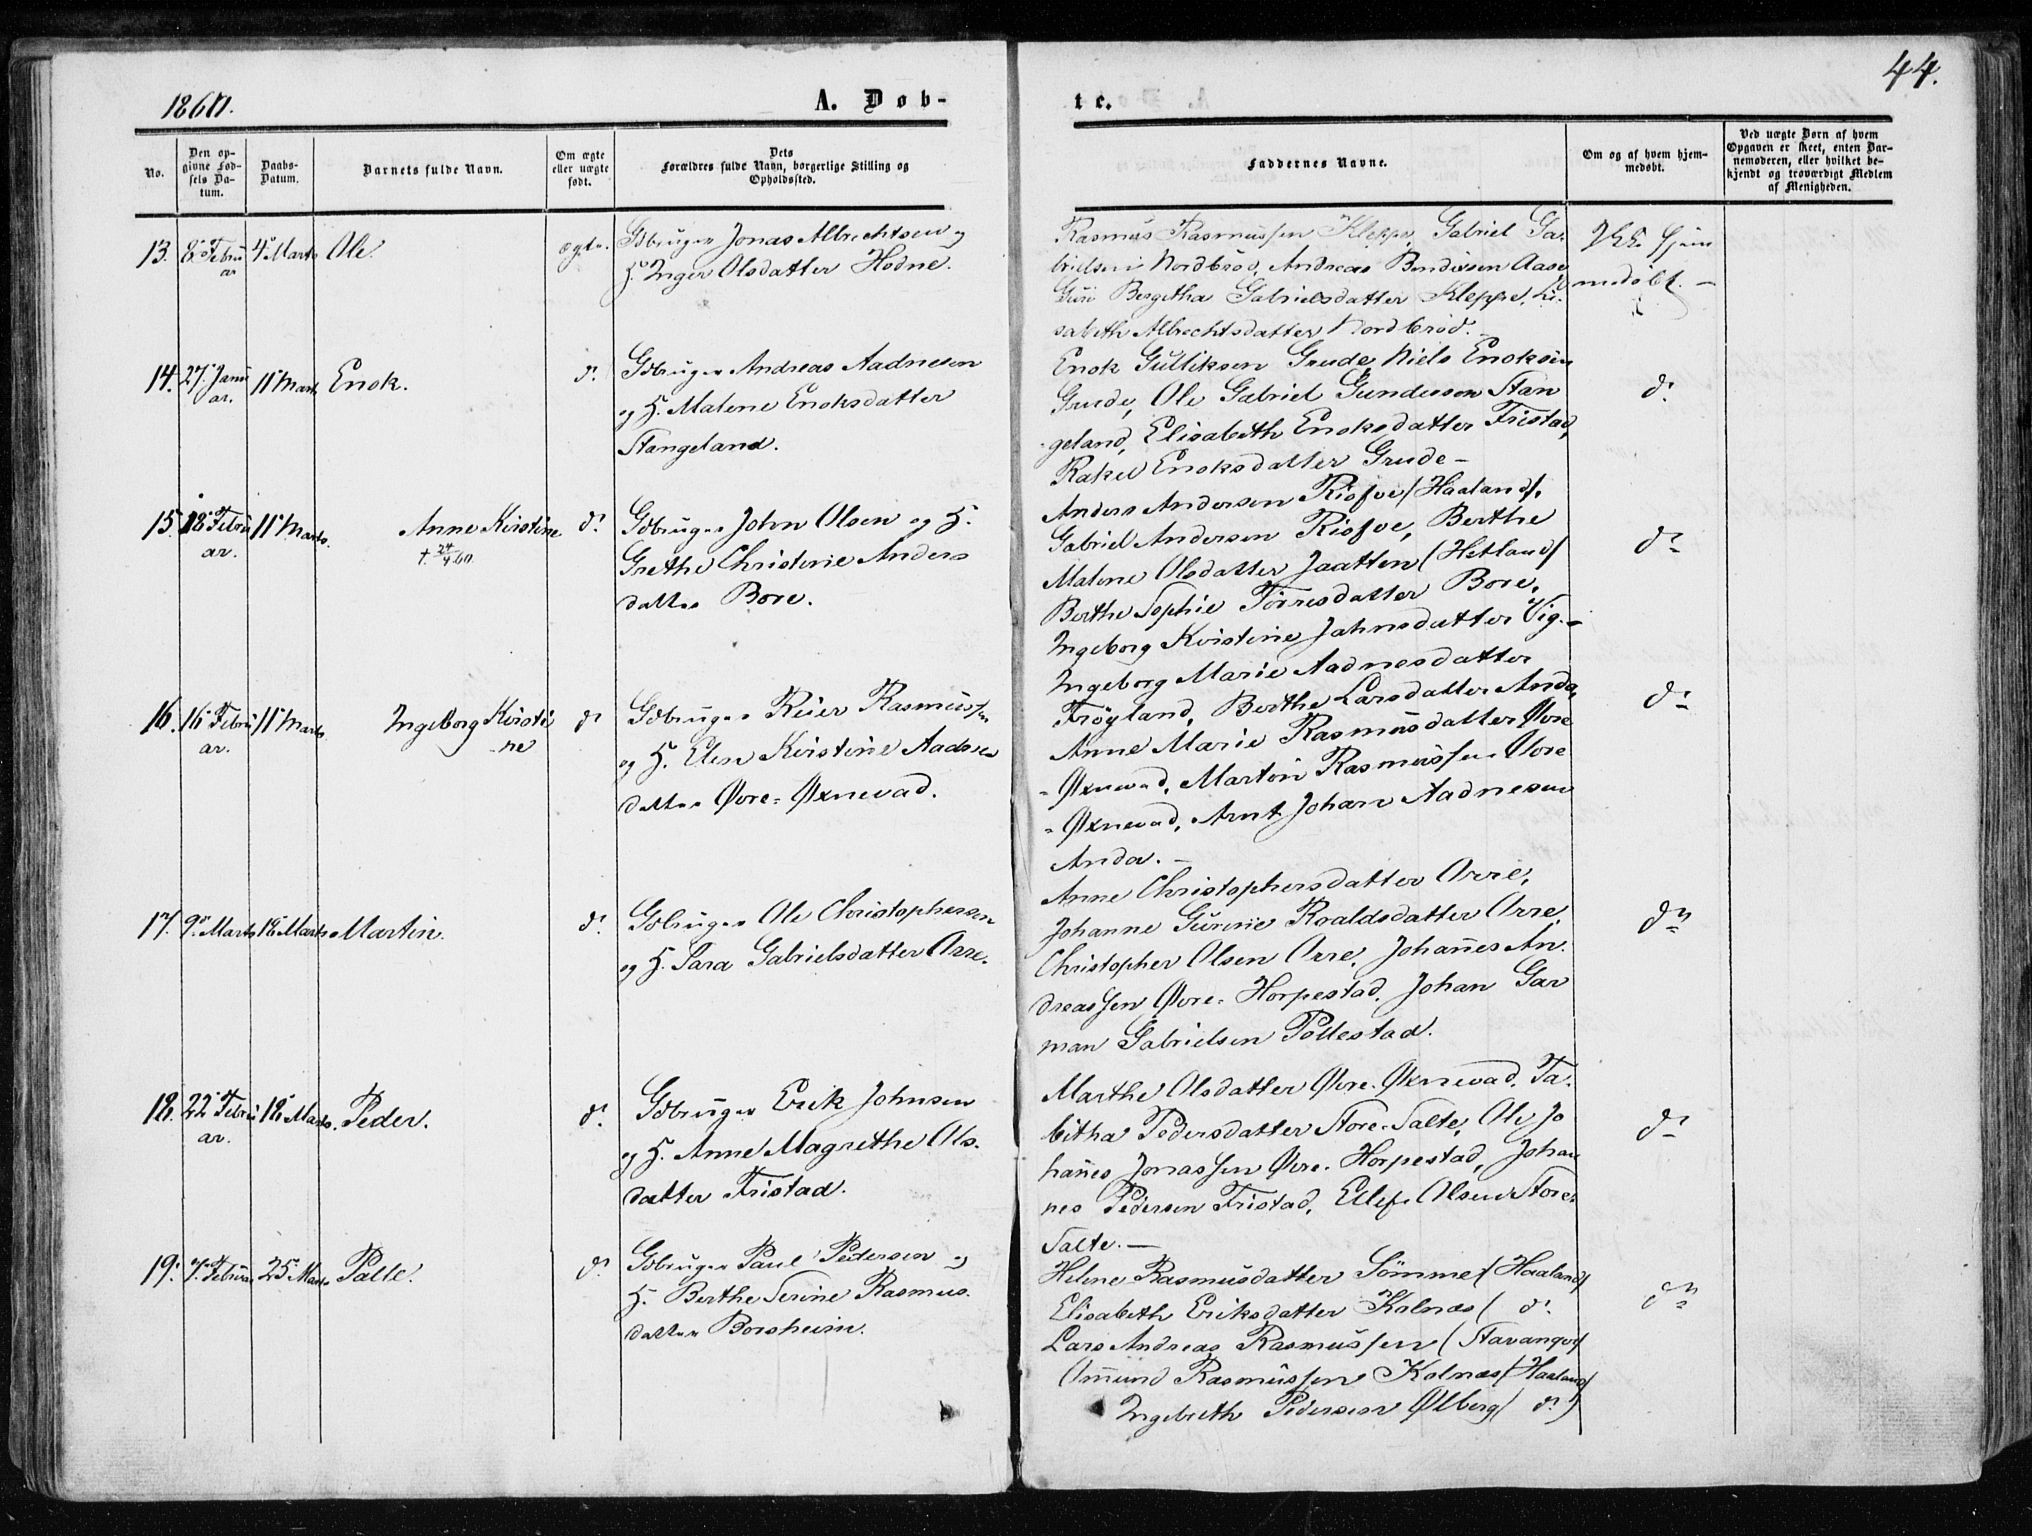 1860.
A. Døb-
te.
44.
No.
Den op-
givne Fød-
sels Da-
tum.
Daabs-
Datum.
Barnets fulde Navn.
Om ægte
eller uægte
født.
Dets
Forældres fulde Navn, borgerlige Stilling og
Opholdssted.
Faddernes Navne.
Om og af hvem hjem-
medøbt.
Ved uægte Børn af hvem
Opgaven er skeet, enten Bar-
nemoderen, eller hvilket be-
kjendt og troværdigt Medlem
af Menigheden.
13. 8de Febru
ar
4de Marts
Ole.
ægte.
Gbruger Jonas Albrechtsen og
H. Inger Olsdatter Hodne.
Rasmus Rasmussen Kleppe, Gabriel Ga-
brielsen Nordbrød, Andreas Bendixsen Aase,
Guri Bergitha Gabrielsdatter Kleppe, Li-
sabeth Albrechtsdatter Nordbrød.
Ikke hjem
medøbt. —
14. 27de Janu
ar.
11te Marts
Enok.
do
Gdbruger Andreas Aadnesen
og H. Malene Enoksdatter
Stangeland.
Enok Gulliksen Grude, Niels Enoksen
Grude, Ole Gabriel Gundersen Stan
geland, Elisabeth Enoksdatter Fristad,
Rakel Enoksdatter Grude —
do
15. 18de Febru
ar.
11te Marts.
Anne Kirstine
† 24/4 60.
do
Gdbruger John Olsen og H.
Grethe Christine Anders
datter Bore.
Anders Andersen Risfoe (Haaland),
Gabriel Andersen Risfoe, Berthe
Malene Olsdatter Jaatten (Hetland)
Berthe Sophie Tørresdatter Bore,
Ingeborg Kristine Jahnsdatter Vig. —
do
16. 16de Febru
ar.
11te Marts
Ingeborg Kirsti
ne
do
Gdbruger Reier Rasmussen
og H. Elen Kirstine Aadne
datter Øvre-Øxnevad.
Ingeborg Marie Aadnesdatter
Frøyland, Berthe Larsdatter Anda,
Anne Marie Rasmusdatter Øvre
-Øxnevad, Martin Rasmussen Øvre
-Øxnevad, Arnt Johan Aadnesen
Anda. —
do
17. 9de Marts
18de Marts
Martin.
do
Gdbruger Ole Christophersen
og H. Sara Gabrielsdatter Orre.
Anne Christophersdatter Orre,
Johanne Gurine Roaldsdatter Orre,
Christopher Olsen Orre, Johannes An-
dreassen Øvre-Horpestad, Johan Gar
man Gabrielsen Pollestad.
do
18. 22de Febru
ar.
18de Marts.
Peder.
do
Gdbruger Erik Johnsen
og H. Anne Magrethe Ols-
datter Fristad.
Marthe Olsdatter Øvre-Øxnevad, Ta-
bitha Pedersdatter Store-Salte, Ole Jo
hannes Jonassen Øvre-Horpestad, Johan
nes Pedersen Fristad, Ellef Olsen Store-
Salte. —
do
19. 7de Februar
25de Marts
Palle.
do
Gdbruger Paul Pedersen og
H. Berthe Serine Rasmus-
datter Borsheim.
Helene Rasmusdatter Sømme (Haaland)
Elisabeth Eriksdatter Kolnæs (do.
Lars Andreas Rasmussen (Stavanger)
Omund Rasmussen Kolnæs (Haaland)
Ingebreth Pedersen Ølberg (do)
do